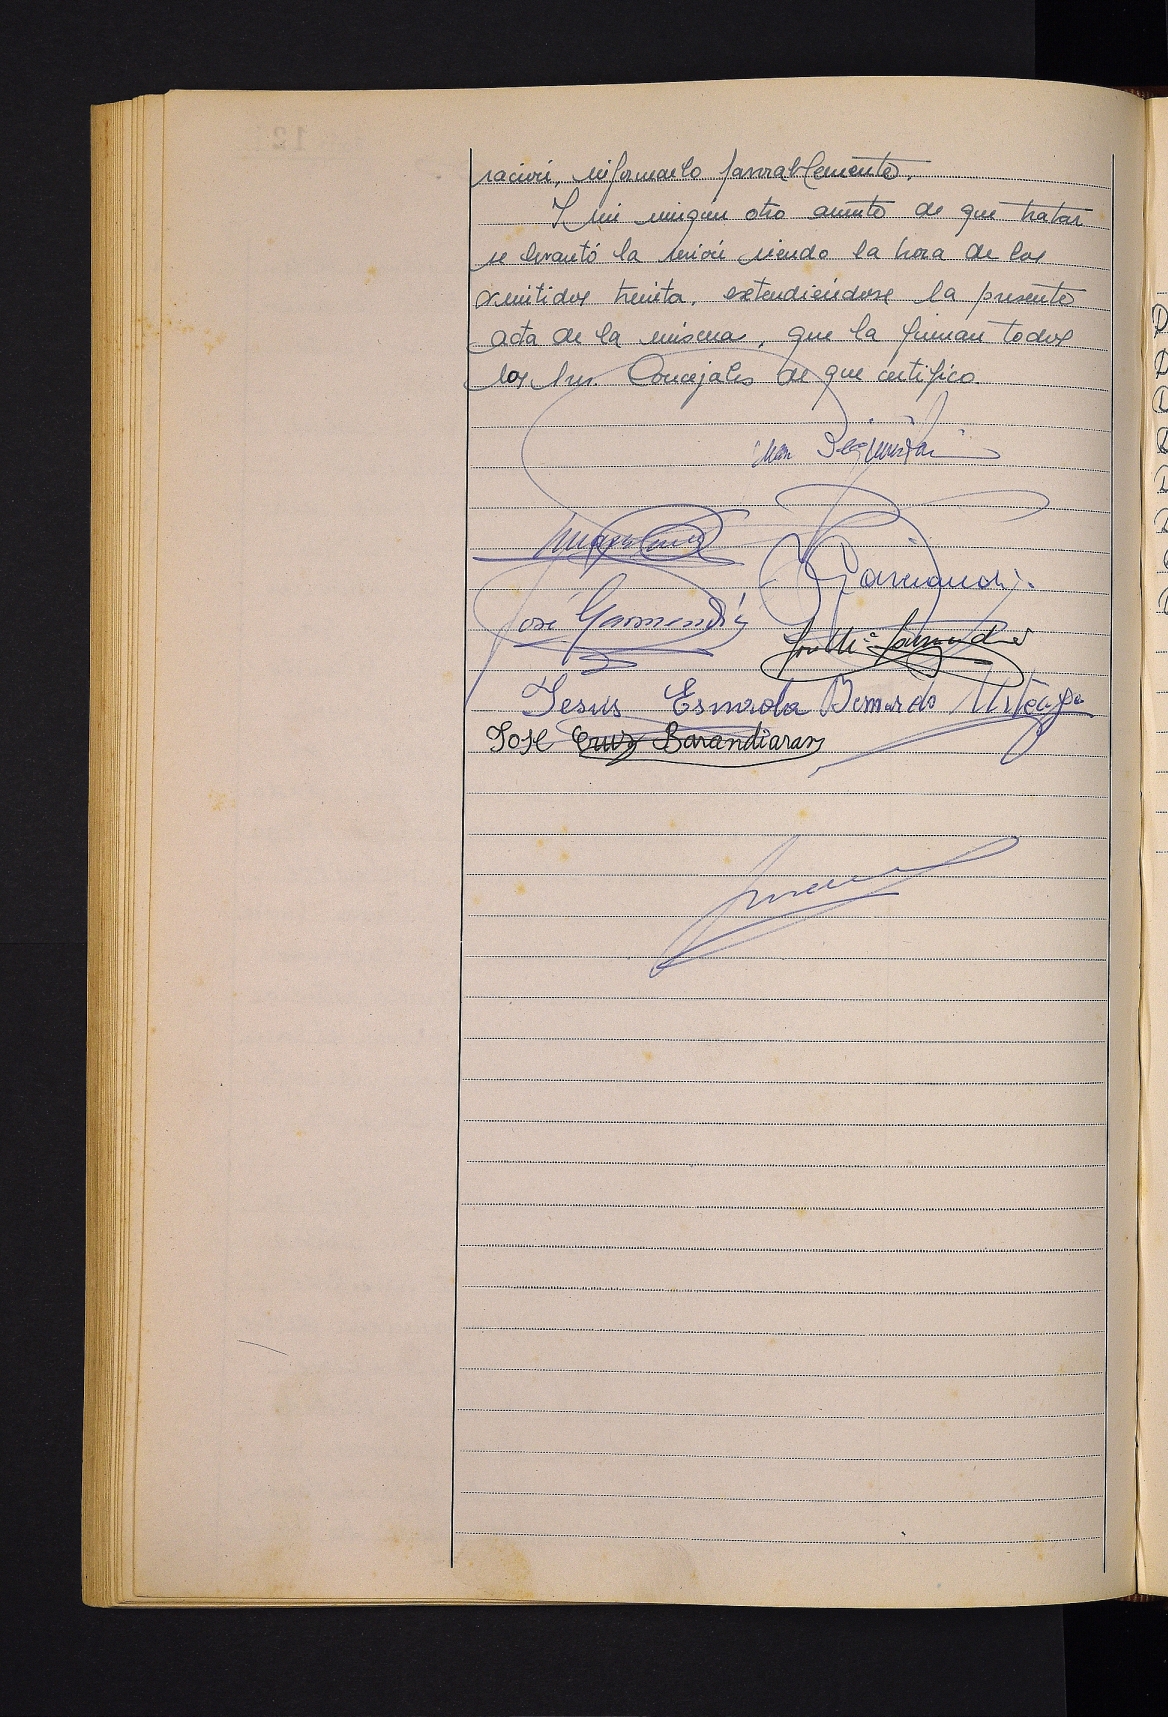 ración, informarlo favorablemente.
Y sin ningún otro asunto de que tratar
se levantó la sesión siendo la hora de las
veintidos treinta, extendiendose la presente
acta de la misma, que la firman todos
los Sres. Concejales de que certifico.
José Garmendia
José Mª Garmendia
Jesus Esnaola Bernardo Urteaga
José Cruz Barandiaran